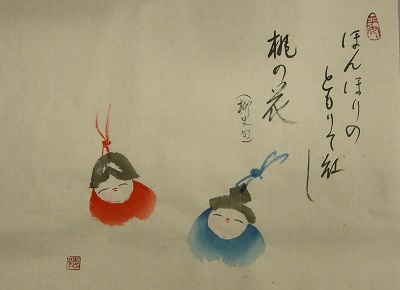 ほんほりの
ともりて紅し
桃の花